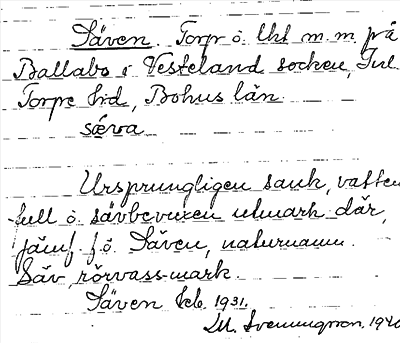 Säven. Torp o. lht m.m på
Ballabo i Västerland socken, Inl.
Torpe hrd, Bohus län.
sæva
Ursprungligen sank, vatten
full o. sävbevuxen utmark där,
jämf. f.ö. Säven, naturnamn.
Säv, rörvass-mark.
Säven Kb. 1931.
M. Svenningsson. 1940